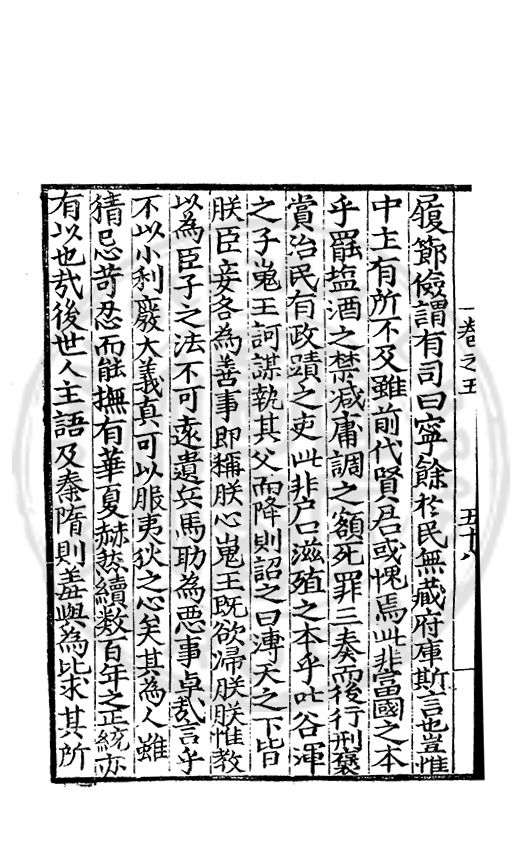 履節儉謂有司曰寧餘於民無藏府庫斯言也豈惟
中主有所不及雖前代賢君或愧焉此非富國之本
乎罷塩酒之禁减庸調之額死罪三奏而後行刑褒
賞治民有政蹟之吏此非户口滋殖之本乎吐谷渾
之子嵬王訶謀執其父而降則詔之曰溥天之下皆
朕臣妾各為善事即稱朕心嵬王既欲歸朕朕惟教
以為臣子之法不可遠遣兵馬助為悪事卓哉言乎
不以小利廢大義真可以服夷狄之心矣其為人雖
猜忌苛忍而能撫有華夏赫然續数百年之正統亦
有以也哉後世人主語及秦隋則羞與為比求其所
卷之五
五十八